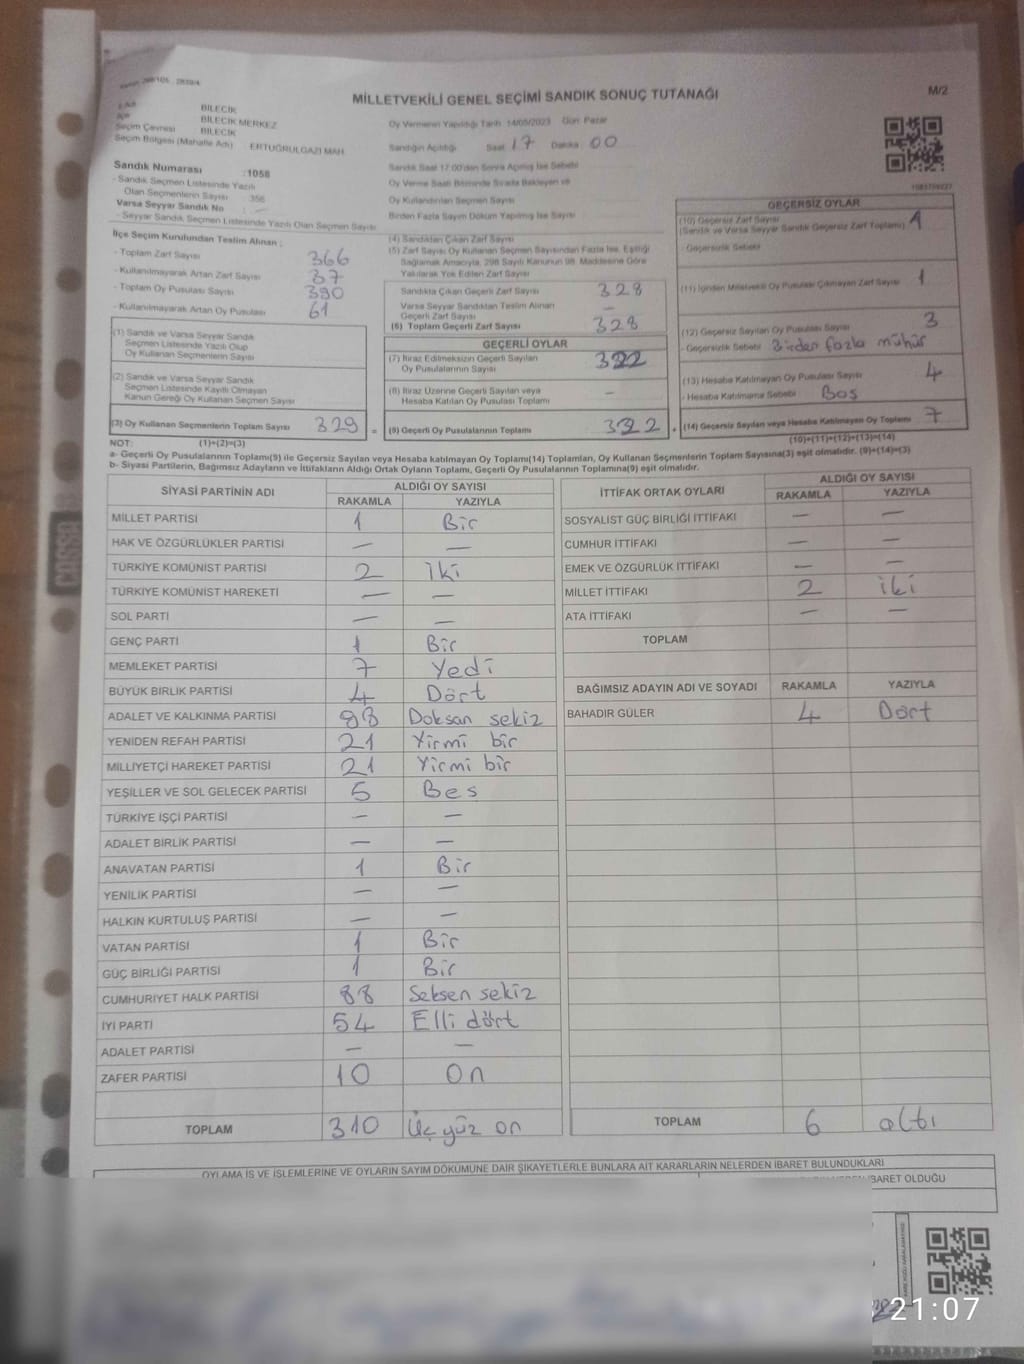 MİLLETVEKİLİ GENEL SEÇİMİ SANDIK SONUÇ TUTANAĞI
M/2
BİLECİK
BİLECİK MERKEZ
Seçim Çevresi BİLECİK
Seçim Bölgesi (Mahalle Adı) ERTUĞRULGAZİ MAH.
Oy Vermenin Yapıldığı Tarih 14/05/2023 Gün Pazar
Sandığın Açıldığı Saat 17 Dakika 00
Sandık Saat 17.00'den Sonra Açılmış İse Sebebi
Oy Verme Saati Bitiminde Sırada Bekleyen ve
Oy Kullandırılan Seçmen Sayısı
Birden Fazla Sayım Döküm Yapılmış İse Sayısı
Sandık Numarası :1058
- Sandık Seçmen Listesinde Yazılı
Olan Seçmenlerin Sayısı : 356
Varsa Seyyar Sandık No
- Seyyar Sandık Seçmen Listesinde Yazılı Olan Seçmen Sayısı
İlçe Seçim Kurulundan Teslim Alınan :
- Toplam Zarf Sayısı 366
- Kullanılmayarak Artan Zarf Sayısı 37
- Toplam Oy Pusulası Sayısı 390
- Kullanılmayarak Artan Oy Pusulası 61
(1) Sandık ve Varsa Seyyar Sandık
Seçmen Listesinde Yazılı Olup
Oy Kullanan Seçmenlerin Sayısı
(2) Sandık ve Varsa Seyyar Sandık
Seçmen Listesinde Kayıtlı Olmayan
Kanun Gereği Oy Kullanan Seçmen Sayısı
(3) Oy Kullanan Seçmenlerin Toplam Sayısı 329 =
(4) Sandıktan Çıkan Zarf Sayısı
(5) Zarf Sayısı Oy Kullanan Seçmen Sayısından Fazla İse, Eşitliği
Sağlamak Amacıyla, 298 Sayılı Kanunun 98. Maddesine Göre
Yakılarak Yok Edilen Zarf Sayısı
Sandıkta Çıkan Geçerli Zarf Sayısı 328
Varsa Seyyar Sandıktan Teslim Alınan
Geçerli Zarf Sayısı —
(6) Toplam Geçerli Zarf Sayısı 328
GEÇERLİ OYLAR
(7) İtiraz Edilmeksizin Geçerli Sayılan
Oy Pusulalarının Sayısı 322
(8) İtiraz Üzerine Geçerli Sayılan veya
Hesaba Katılan Oy Pusulası Toplamı —
(9) Geçerli Oy Pusulalarının Toplamı 322 +
GEÇERSİZ OYLAR
(10) Geçersiz Zarf Sayısı 1
(Sandık ve Varsa Seyyar Sandık Geçersiz Zarf Toplamı)
- Geçersizlik Sebebi
(11) İçinden Milletvekili Oy Pusulası Çıkmayan Zarf Sayısı 1
(12) Geçersiz Sayılan Oy Pusulası Sayısı 3
- Geçersizlik Sebebi Birden fazla mühür
(13) Hesaba Katılmayan Oy Pusulası Sayısı 4
- Hesaba Katılmama Sebebi Boş
(14) Geçersiz Sayılan veya Hesaba Katılmayan Oy Toplamı 7
NOT: (1)+(2)=(3) (10)+(11)+(12)+(13)=(14)
a- Geçerli Oy Pusulalarının Toplamı(9) ile Geçersiz Sayılan veya Hesaba katılmayan Oy Toplamı(14) Toplamları, Oy Kullanan Seçmenlerin Toplam Sayısına(3) eşit olmalıdır. (9)+(14)=(3)
b- Siyasi Partilerin, Bağımsız Adayların ve İttifakların Aldığı Ortak Oyların Toplamı, Geçerli Oy Pusulalarının Toplamına(9) eşit olmalıdır.
SİYASİ PARTİNİN ADI ALDIĞI OY SAYISI
RAKAMLA YAZIYLA
MİLLET PARTİSİ 1 Bir
HAK VE ÖZGÜRLÜKLER PARTİSİ — —
TÜRKİYE KOMÜNİST PARTİSİ 2 İki
TÜRKİYE KOMÜNİST HAREKETİ — —
SOL PARTİ — —
GENÇ PARTİ 1 Bir
MEMLEKET PARTİSİ 7 Yedi
BÜYÜK BİRLİK PARTİSİ 4 Dört
ADALET VE KALKINMA PARTİSİ 98 Doksan sekiz
YENİDEN REFAH PARTİSİ 21 Yirmi bir
MİLLİYETÇİ HAREKET PARTİSİ 21 Yirmi bir
YEŞİLLER VE SOL GELECEK PARTİSİ 5 Bes
TÜRKİYE İŞÇİ PARTİSİ — —
ADALET BİRLİK PARTİSİ — —
ANAVATAN PARTİSİ 1 Bir
YENİLİK PARTİSİ — —
HALKIN KURTULUŞ PARTİSİ — —
VATAN PARTİSİ 1 Bir
GÜÇ BİRLİĞİ PARTİSİ 1 Bir
CUMHURİYET HALK PARTİSİ 88 Seksen sekiz
İYİ PARTİ 54 Elli dört
ADALET PARTİSİ — —
ZAFER PARTİSİ 10 On
TOPLAM 310 Üç yüz on
İTTİFAK ORTAK OYLARI ALDIĞI OY SAYISI
RAKAMLA YAZIYLA
SOSYALİST GÜÇ BİRLİĞİ İTTİFAKI — —
CUMHUR İTTİFAKI — —
EMEK VE ÖZGÜRLÜK İTTİFAKI — —
MİLLET İTTİFAKI 2 iki
ATA İTTİFAKI — —
TOPLAM
BAĞIMSIZ ADAYIN ADI VE SOYADI RAKAMLA YAZIYLA
BAHADIR GÜLER 4 Dört
TOPLAM 6 altı
OYLAMA İŞ VE İŞLEMLERİNE VE OYLARIN SAYIM DÖKÜMÜNE DAİR ŞİKAYETLERLE BUNLARA AİT KARARLARIN NELERDEN İBARET BULUNDUKLARI
İBARET OLDUĞU
21:07